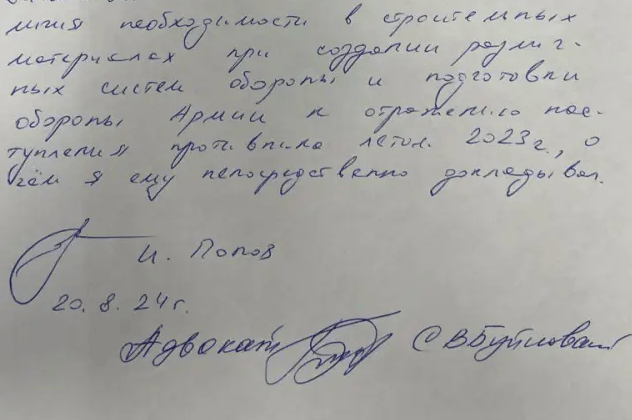 мия необходимости в строительных
материалах при создании различ-
ных систем обороны и подготовки
обороны Армии к отражению нас-
тупления противника летом 2023 г., о
чём я ему непосредственно докладывал.
И. Попов
20.8.24 г.
Адвокат С В Буйновский